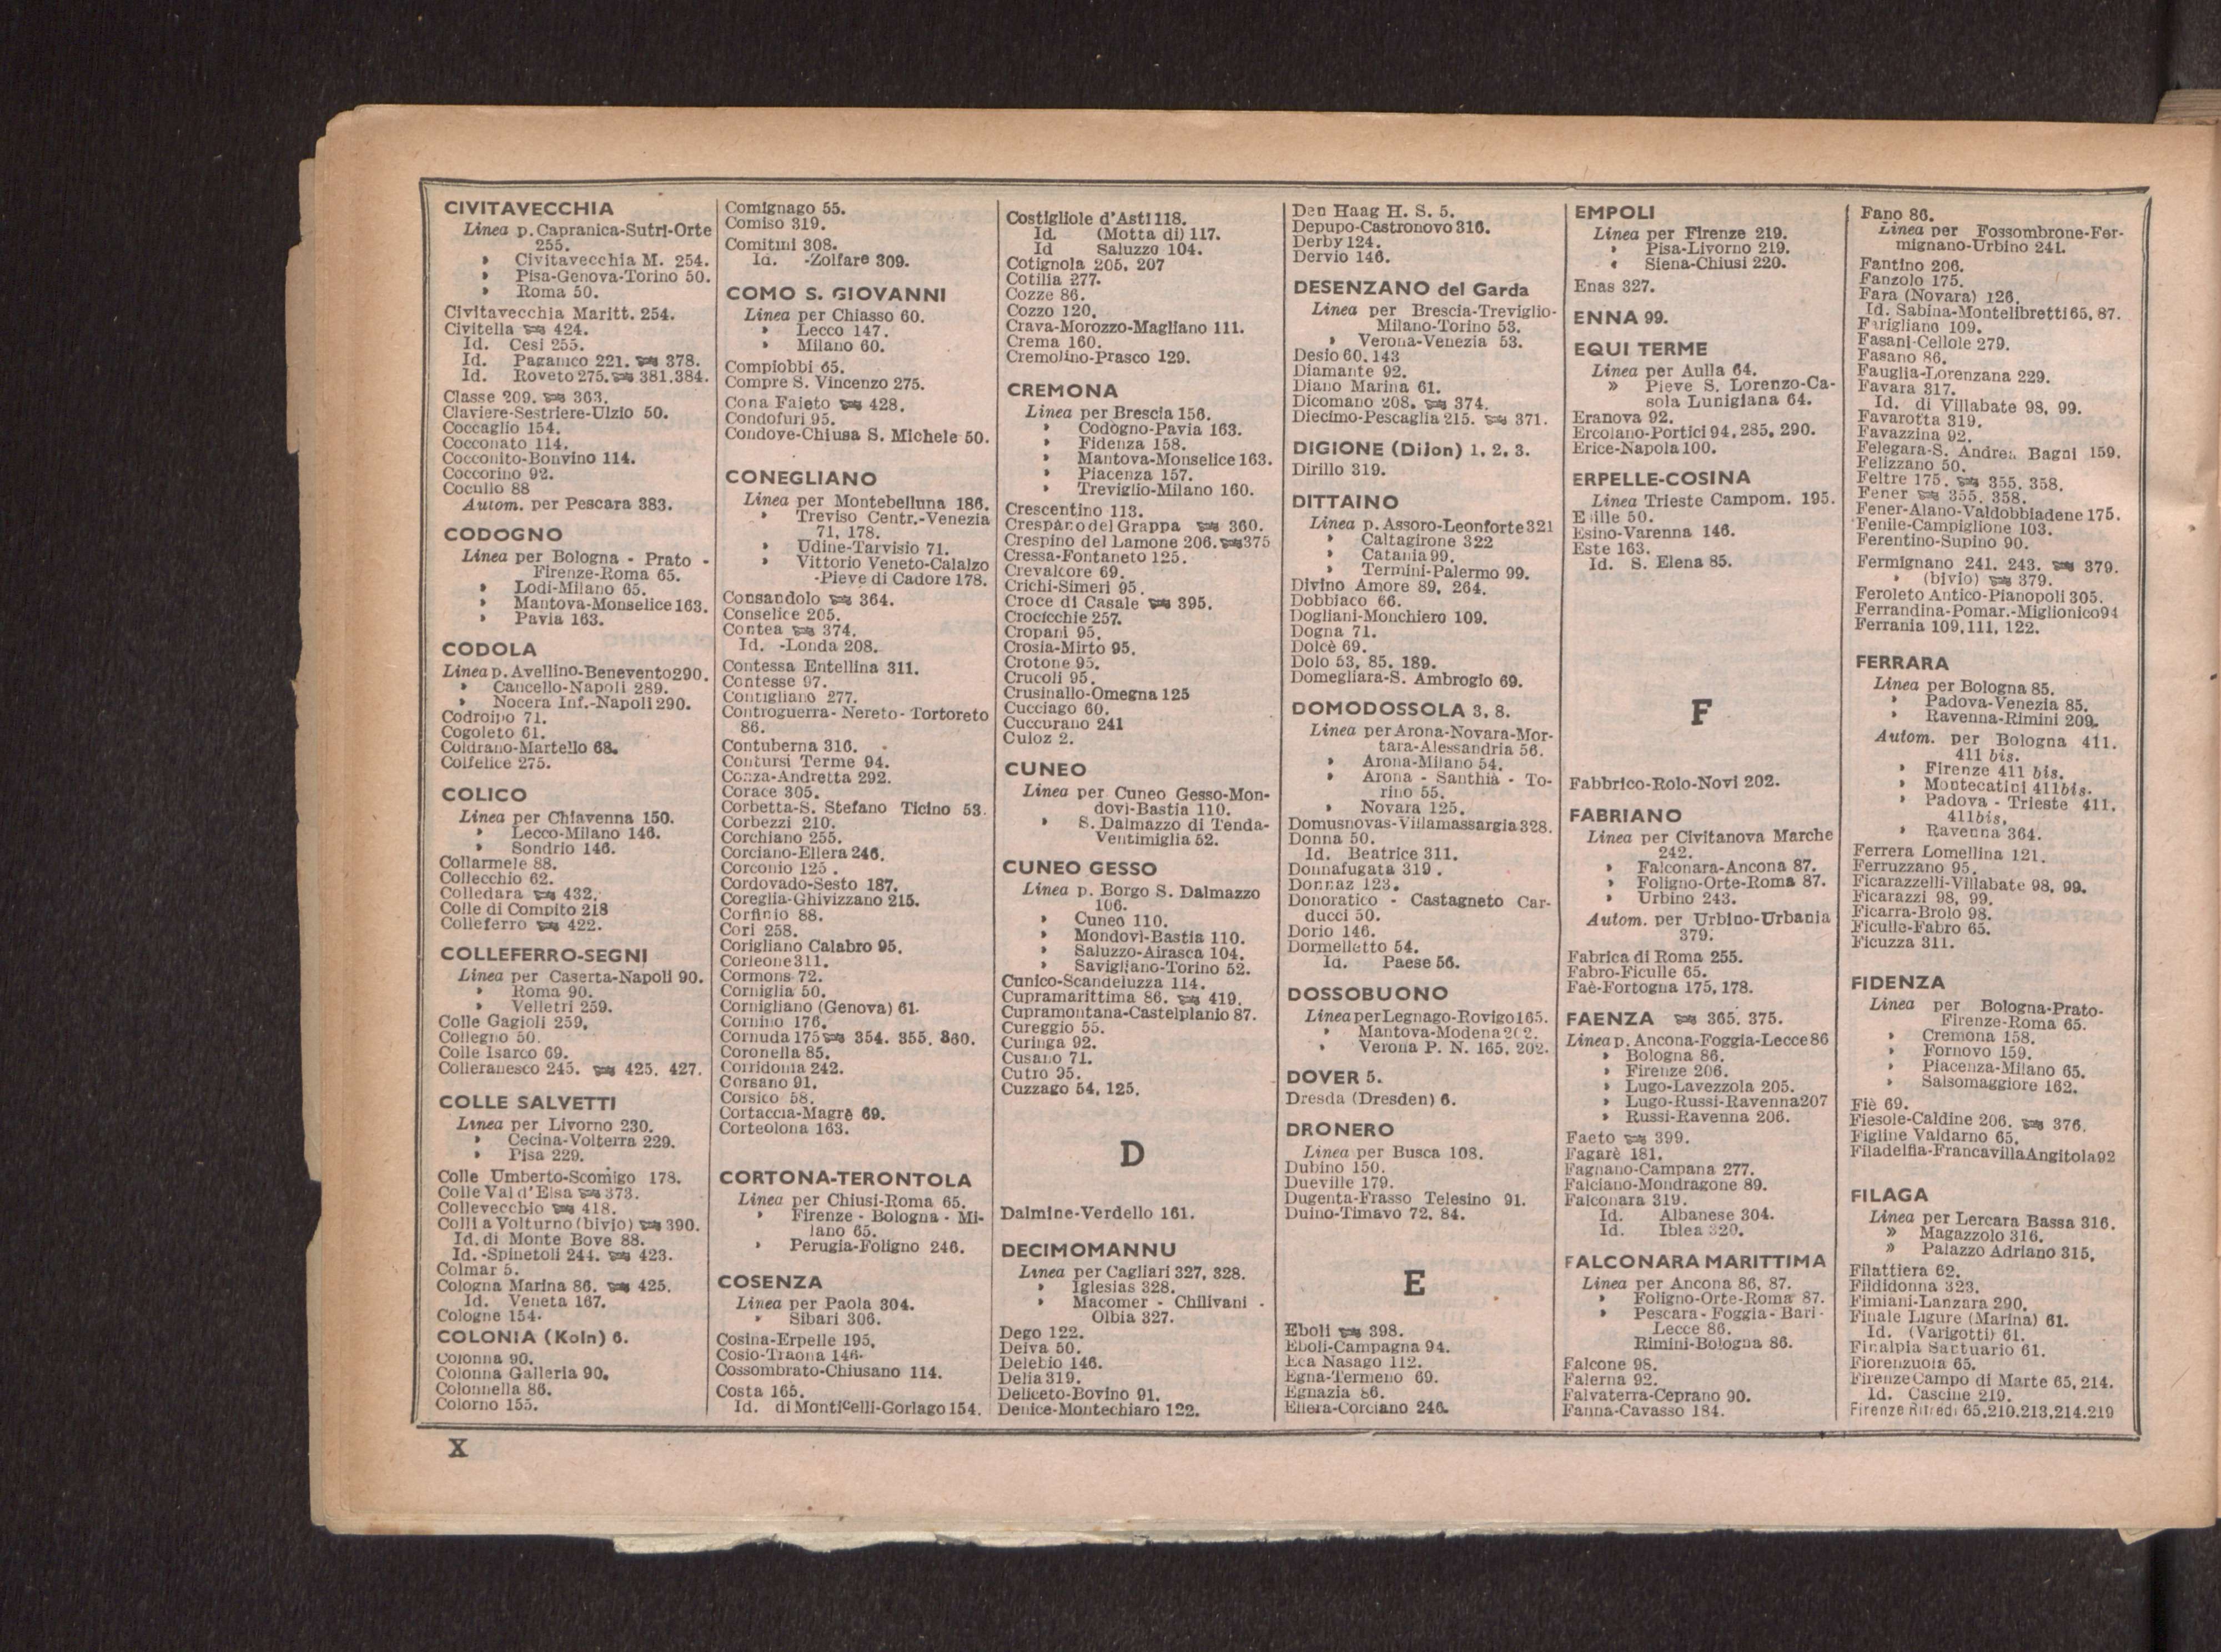 CIVITAVECCHIA
Linea p. Capranica-Sutri-Orte
255.
» Civitavecchia M. 254.
» Pisa-Genova-Torino 50.
» Roma 50.
Civitavecchia Maritt. 254.
Civitella 424.
Id. Cesi 255.
Id. Paganico 221. 378.
Id. Roveto 275. 381.384.
Classe 209. 363.
Claviere-Sestriere-Ulzio 50.
Coccaglio 154.
Cocconato 114.
Cocconito-Bonvino 114.
Coccorino 92.
Cocullo 88
Autom. per Pescara 383.
CODOGNO
Linea per Bologna - Prato -
Firenze-Roma 65.
» Lodi-Milano 65.
» Mantova-Monselice 163.
» Pavia 163.
CODOLA
Linea p. Avellino-Benevento 290.
» Cancello-Napoli 289.
» Nocera Inf.-Napoli 290.
Codroipo 71.
Cogoleto 61.
Coldrano-Martello 68.
Colfelice 275.
COLICO
Linea per Chiavenna 150.
» Lecco-Milano 146.
» Sondrio 146.
Collarmele 88.
Collecchio 62.
Colledara 432.
Colle di Compito 218
Colleferro 422.
COLLEFERRO-SEGNI
Linea per Caserta-Napoli 90.
» Roma 90.
» Velletri 259.
Colle Gagioli 259.
Collegno 50.
Colle Isarco 69.
Colleranesco 245. 425. 427.
COLLE SALVETTI
Linea per Livorno 230.
» Cecina-Volterra 229.
» Pisa 229.
Colle Umberto-Scomigo 178.
Colle Val d'Elsa 373.
Collevecchio 418.
Colli a Volturno (bivio) 390.
Id. di Monte Bove 88.
Id. -Spinetoli 244. 423.
Colmar 5.
Cologna Marina 86. 425.
Id. Veneta 167.
Cologne 154.
COLONIA (Koln) 6.
Colonna 90.
Colonna Galleria 90.
Colonnella 86.
Colorno 155.
Comignago 55.
Comiso 319.
Comitini 308.
Id. -Zolfare 309.
COMO S. GIOVANNI
Linea per Chiasso 60.
» Lecco 147.
» Milano 60.
Compiobbi 65.
Compre S. Vincenzo 275.
Cona Faieto 428.
Condofuri 95.
Condove-Chiusa S. Michele 50.
CONEGLIANO
Linea per Montebelluna 186.
» Treviso Centr.-Venezia
71, 178.
» Udine-Tarvisio 71.
» Vittorio Veneto-Calalzo
-Pieve di Cadore 178.
Consandolo 364.
Conselice 205.
Contea 374.
Id. -Londa 208.
Contessa Entellina 311.
Contesse 97.
Contigliano 277.
Controguerra-Nereto-Tortoreto
86.
Contuberna 316.
Contursi Terme 94.
Conza-Andretta 292.
Corace 305.
Corbetta-S. Stefano Ticino 53.
Corbezzi 210.
Corchiano 255.
Corciano-Ellera 246.
Corconio 125.
Cordovado-Sesto 187.
Coreglia-Ghivizzano 215.
Corfinio 88.
Cori 258.
Corigliano Calabro 95.
Corleone 311.
Cormons 72.
Corniglia 50.
Cornigliano (Genova) 61.
Cornino 176.
Cornuda 175 354. 355. 360.
Coronella 85.
Corridonia 242.
Corsano 91.
Corsico 58.
Cortaccia-Magrè 69.
Corteolona 163.
CORTONA-TERONTOLA
Linea per Chiusi-Roma 65.
» Firenze - Bologna - Mi-
lano 65.
» Perugia-Foligno 246.
COSENZA
Linea per Paola 304.
» Sibari 306.
Cosina-Erpelle 195.
Cosio-Traona 146.
Cossombrato-Chiusano 114.
Costa 165.
Id. di Monticelli-Gorlago 154.
Costigliole d'Asti 118.
Id. (Motta di) 117.
Id Saluzzo 104.
Cotignola 205, 207
Cotilia 277.
Cozze 86.
Cozzo 120.
Crava-Morozzo-Magliano 111.
Crema 160.
Cremolino-Prasco 129.
CREMONA
Linea per Brescia 156.
» Codogno-Pavia 163.
» Fidenza 158.
» Mantova-Monselice 163.
» Piacenza 157.
» Treviglio-Milano 160.
Crescentino 113.
Crespano del Grappa 360.
Crespino del Lamone 206. 375
Cressa-Fontaneto 125.
Crevalcore 69.
Crichi-Simeri 95.
Croce di Casale 395.
Crocicchie 257.
Cropani 95.
Crosia-Mirto 95.
Crotone 95.
Crucoli 95.
Crusinallo-Omegna 125
Cucciago 60.
Cuccurano 241
Culoz 2.
CUNEO
Linea per Cuneo Gesso-Mon-
dovì-Bastia 110.
» S. Dalmazzo di Tenda-
Ventimiglia 52.
CUNEO GESSO
Linea p. Borgo S. Dalmazzo
106.
» Cuneo 110.
» Mondovì-Bastia 110.
» Saluzzo-Airasca 104.
» Savigliano-Torino 52.
Cunico-Scandeluzza 114.
Cupramarittima 86. 419.
Cupramontana-Castelplanio 87.
Cureggio 55.
Curinga 92.
Cusano 71.
Cutro 95.
Cuzzago 54, 125.
D
Dalmine-Verdello 161.
DECIMOMANNU
Linea per Cagliari 327, 328.
» Iglesias 328.
» Macomer - Chilivani -
Olbia 327.
Dego 122.
Deiva 50.
Delebio 146.
Delia 319.
Deliceto-Bovino 91.
Denice-Montechiaro 122.
Den Haag H. S. 5.
Depupo-Castronovo 316.
Derby 124.
Dervio 146.
DESENZANO del Garda
Linea per Brescia-Treviglio-
Milano-Torino 53.
» Verona-Venezia 53.
Desio 60, 143
Diamante 92.
Diano Marina 61.
Dicomano 208. 374.
Diecimo-Pescaglia 215. 371.
DIGIONE (Dijon) 1, 2, 3.
Dirillo 319.
DITTAINO
Linea p. Assoro-Leonforte 321
» Caltagirone 322
» Catania 99.
» Termini-Palermo 99.
Divino Amore 89, 264.
Dobbiaco 66.
Dogliani-Monchiero 109.
Dogna 71.
Dolcè 69.
Dolo 53, 85, 189.
Domegliara-S. Ambrogio 69.
DOMODOSSOLA 3, 8.
Linea per Arona-Novara-Mor-
tara-Alessandria 56.
» Arona-Milano 54.
» Arona - Santhià - To-
rino 55.
» Novara 125.
Domusnovas-Villamassargia 328.
Donna 50.
Id. Beatrice 311.
Donnafugata 319.
Donnaz 123.
Donoratico - Castagneto Car-
ducci 50.
Dorio 146.
Dormelletto 54.
Id. Paese 56.
DOSSOBUONO
Linea per Legnago-Rovigo 165.
» Mantova-Modena 202.
» Verona P. N. 165, 202.
DOVER 5.
Dresda (Dresden) 6.
DRONERO
Linea per Busca 108.
Dubino 150.
Dueville 179.
Dugenta-Frasso Telesino 91.
Duino-Timavo 72, 84.
E
Eboli 398.
Eboli-Campagna 94.
Eca Nasago 112.
Egna-Termeno 69.
Egnazia 86.
Ellera-Corciano 246.
EMPOLI
Linea per Firenze 219.
» Pisa-Livorno 219.
» Siena-Chiusi 220.
Enas 327.
ENNA 99.
EQUI TERME
Linea per Aulla 64.
» Pieve S. Lorenzo-Ca-
sola Lunigiana 64.
Eranova 92.
Ercolano-Portici 94, 285, 290.
Erice-Napola 100.
ERPELLE-COSINA
Linea Trieste Campom. 195.
50.
Esino-Varenna 146.
Este 163.
Id. S. Elena 85.
F
Fabbrico-Rolo-Novi 202.
FABRIANO
Linea per Civitanova Marche
242.
» Falconara-Ancona 87.
» Foligno-Orte-Roma 87.
» Urbino 243.
Autom. per Urbino-Urbania
379.
Fabrica di Roma 255.
Fabro-Ficulle 65.
Faè-Fortogna 175, 178.
FAENZA 365. 375.
Linea p. Ancona-Foggia-Lecce 86
» Bologna 86.
» Firenze 206.
» Lugo-Lavezzola 205.
» Lugo-Russi-Ravenna 207
» Russi-Ravenna 206.
Faeto 399.
Fagarè 181.
Fagnano-Campana 277.
Falciano-Mondragone 89.
Falconara 319.
Id. Albanese 304.
Id. Iblea 320.
FALCONARA MARITTIMA
Linea per Ancona 86, 87.
» Foligno-Orte-Roma 87.
» Pescara - Foggia - Bari -
Lecce 86.
Rimini-Bologna 86.
Falcone 98.
Falerna 92.
Falvaterra-Ceprano 90.
Fanna-Cavasso 184.
Fano 86.
Linea per Fossombrone-Fer-
mignano-Urbino 241.
Fantino 206.
Fanzolo 175.
Fara (Novara) 126.
Id. Sabina-Montelibretti 65, 87.
Farigliano 109.
Fasani-Cellole 279.
Fasano 86.
Fauglia-Lorenzana 229.
Favara 317.
Id. di Villabate 98, 99.
Favarotta 319.
Favazzina 92.
Felegara-S. Andrea Bagni 159.
Felizzano 50.
Feltre 175. 355. 358.
Fener 355. 358.
Fener-Alano-Valdobbiadene 175.
Fenile-Campiglione 103.
Ferentino-Supino 90.
Fermignano 241. 243. 379.
» (bivio) 379.
Feroleto Antico-Pianopoli 305.
Ferrandina-Pomar.-Miglionico 94
Ferrania 109, 111, 122.
FERRARA
Linea per Bologna 85.
» Padova-Venezia 85.
» Ravenna-Rimini 209.
Autom. per Bologna 411.
411 bis.
» Firenze 411 bis.
» Montecatini 411 bis.
» Padova - Trieste 411.
411 bis.
» Ravenna 364.
Ferrera Lomellina 121.
Ferruzzano 95.
Ficarazzelli-Villabate 98, 99.
Ficarazzi 98, 99.
Ficarra-Brolo 98.
Ficulle-Fabro 65.
Ficuzza 311.
FIDENZA
Linea per Bologna-Prato-
Firenze-Roma 65.
» Cremona 158.
» Fornovo 159.
» Piacenza-Milano 65.
» Salsomaggiore 162.
Fiè 69.
Fiesole-Caldine 206. 376.
Figline Valdarno 65.
Filadelfia-Francavilla Angitola 92
FILAGA
Linea per Lercara Bassa 316.
» Magazzolo 316.
» Palazzo Adriano 315.
Filattiera 62.
Fildidonna 323.
Fimiani-Lanzara 290.
Finale Ligure (Marina) 61.
Id. (Varigotti) 61.
Finalpia Santuario 61.
Fiorenzuola 65.
Firenze Campo di Marte 65, 214.
Id. Cascine 219.
Firenze Rifredi 65,210,213,214,219
X